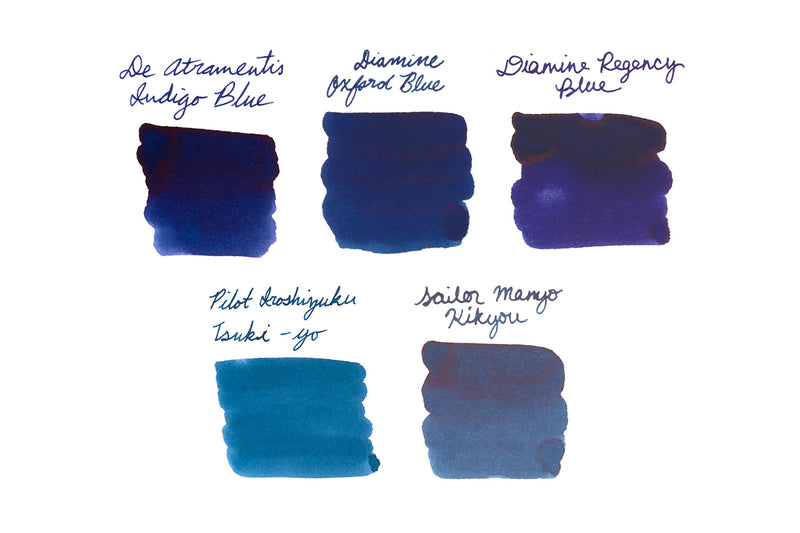 De Atramentis
Indigo Blue
Diamine
Oxford Blue
Diamine Regency
Blue
Pilot Iroshizuku
Tsuki-yo
Sailor Manyo
Kikyou